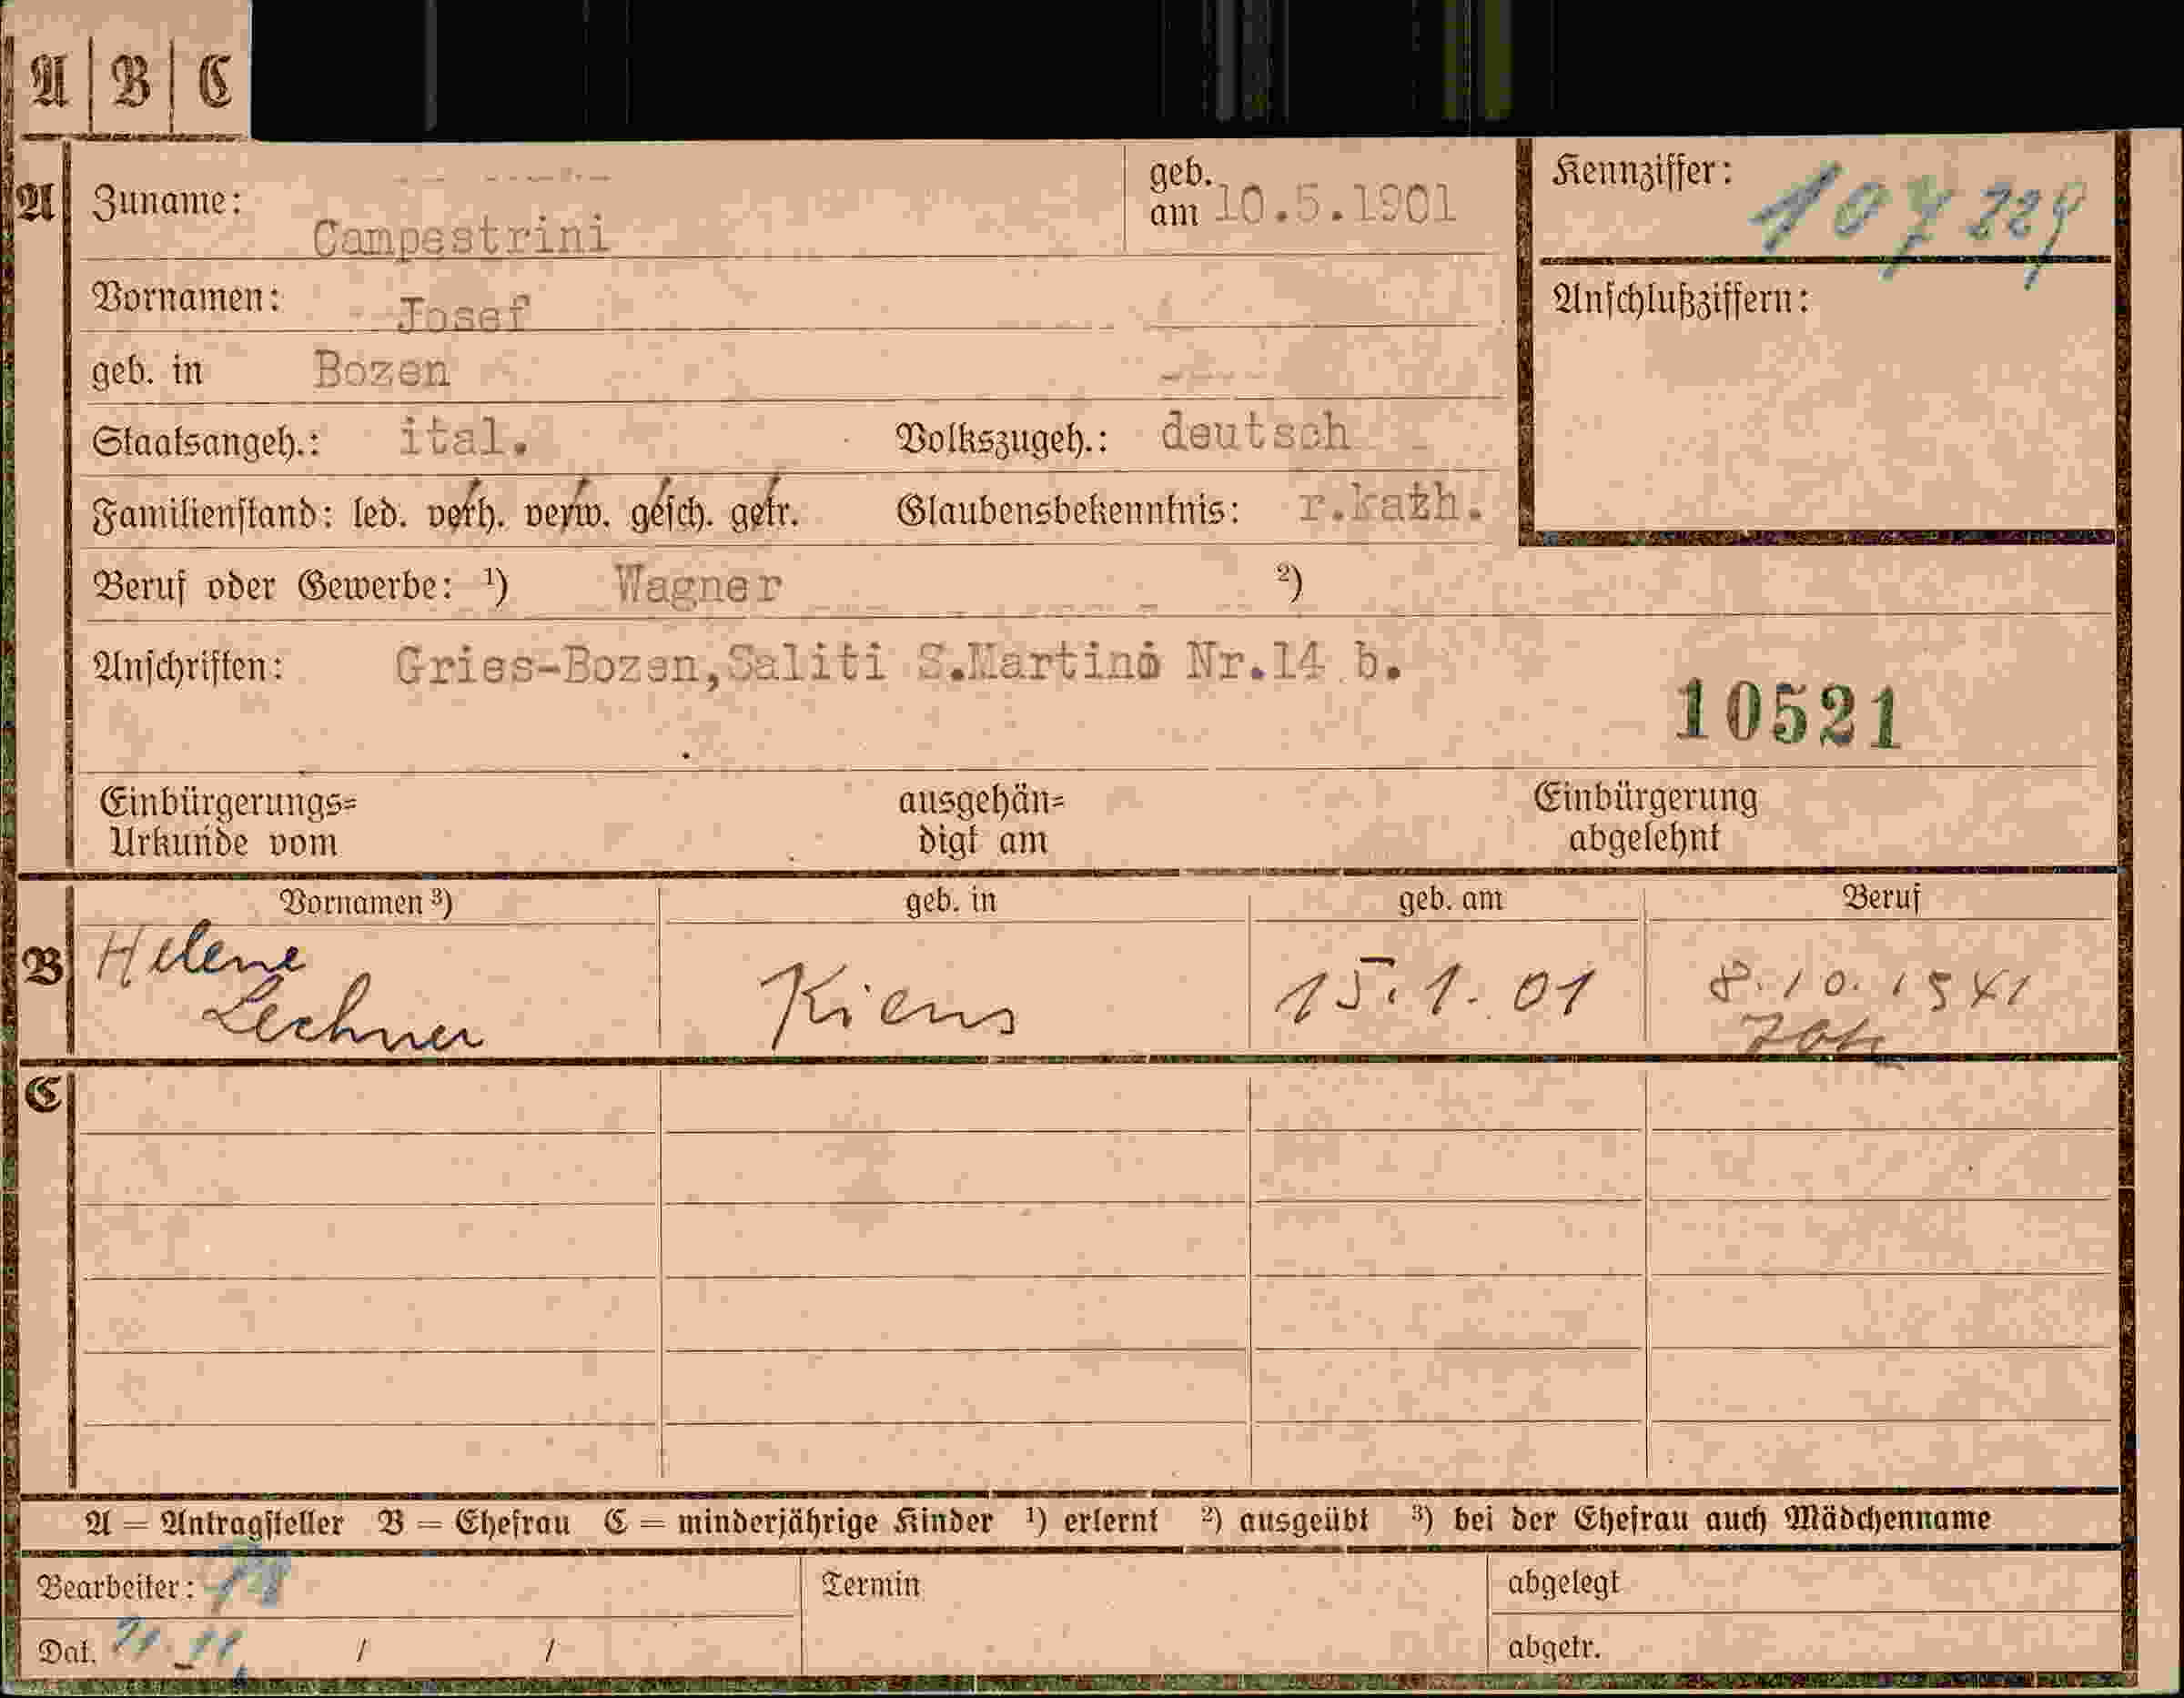 A | B | C
A
Zuname: Campestrini
geb. am 10.5.1901
Kennziffer: 107 229
Vornamen: Josef
Anschlußziffern:
geb. in Bozen
Staatsangeh.: ital. Volkszugeh.: deutsch
Familienstand: led. verh. verw. gesch. getr. Glaubensbekenntnis: r.kath.
Beruf oder Gewerbe: ¹) Wagner ²)
Anschriften: Gries-Bozen,Saliti S.Martino Nr.14 b.
10521
Einbürgerungs=
Urkunde vom
ausgehän=
digt am
Einbürgerung
abgelehnt
Vornamen ³) geb. in geb. am Beruf
B
Helene
Lechner
Kiens
15.1.01
8.10.1941
C
A = Antragsteller B = Ehefrau C = minderjährige Kinder ¹) erlernt ²) ausgeübt ³) bei der Ehefrau auch Mädchenname
Bearbeiter:
Termin
abgelegt
Dat. / /
abgetr.